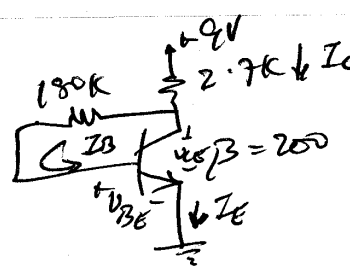 +9V
2.7K ↓ Ic
180K
IB
VCE β = 200
+ VBE -
↓ IE